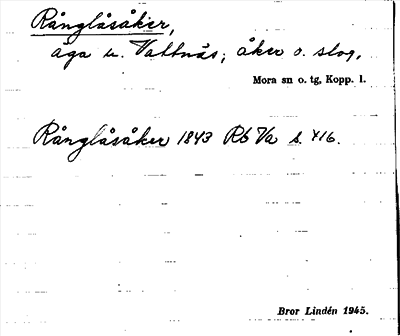 Rånglåsåker,
äga u. Vattnäs; åker o. slog.
Mora sn o. tg, Kopp. l.
Rånglåsåker 1843 Rb Va s. 416.
Bror Lindén 1945.